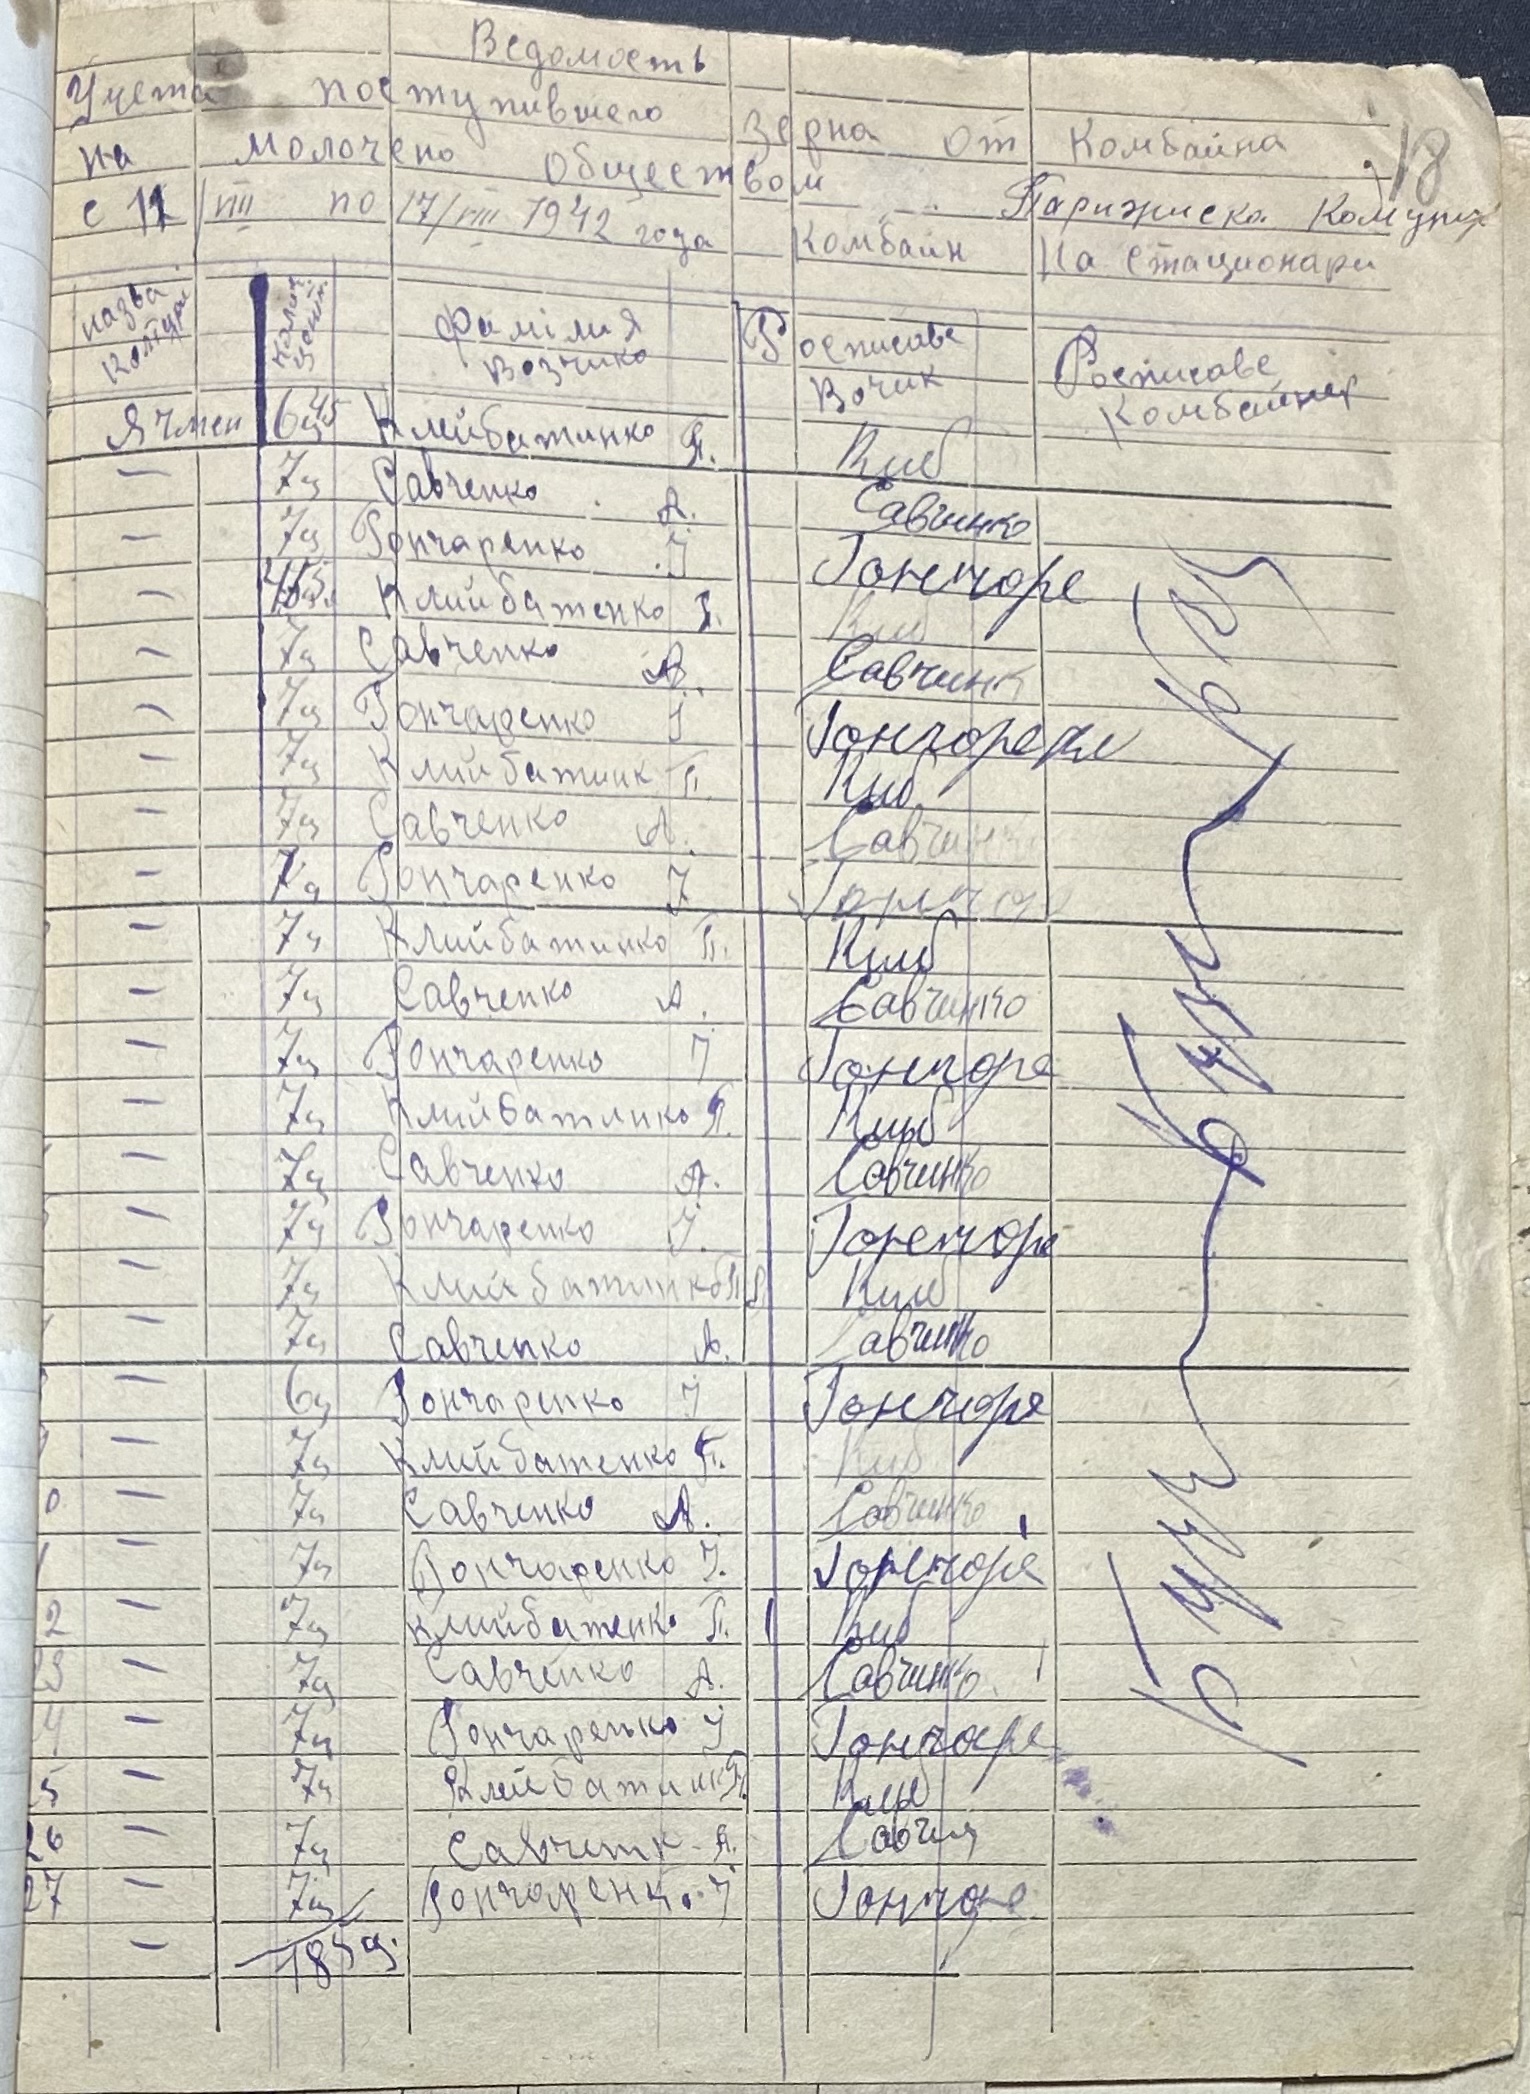 Ведомость
18
Учета поступившего зерна от Комбайна
на молочено обществом Парижиска Комуния
с 11/VIII по 17/VIII 1942 года Комбайн На стационари
назва культури
Колич. цент.
Фамілия Возчика
Росписаве Вочик
Росписаве Комбайнер
Ячмен 6ц45 Клийбатинко П. Киб
— 7ц Савченко А. Савчинко
— 7ц Гончаренко І Гончоре
— Клийбатенко П. Киб
— 7ц Савченко А. Савчинк
— 7ц Гончаренко І Гончорени
— 7ц Клийбатинк П. Киб
— 7ц Савченко А. Савчинк
— 7ц Гончаренко І Гончоре
— 7ц Клийбатинко П. Киб
— 7ц Савченко А. Савчинко
— 7ц Гончаренко І Гончоре
— 7ц Клийбатинко П. Киб
— 7ц Савченко А. Савчинко
— 7ц Гончаренко І. Гончоре
— 7ц Клийбатинко П Киб
— 7ц Савченко А. Савчинко
— 6ц Гончаренко І Гончоре
— 7ц Клийбатенко П. Киб
0 — 7ц Савченко А. Савчинко
— 7ц Гончаренко І. Гончоре
2 — 7ц Клийбатенко П. Киб
23 — 7ц Савченко А. Савчинко
4 — 7ц Гончаренко І Гончоре
5 — 7ц Клийбатинк П. Киб
26 — 7ц Савчетк А. Савчи
27 — 7ц Гончоренк. І Гончоре
— 185ц.